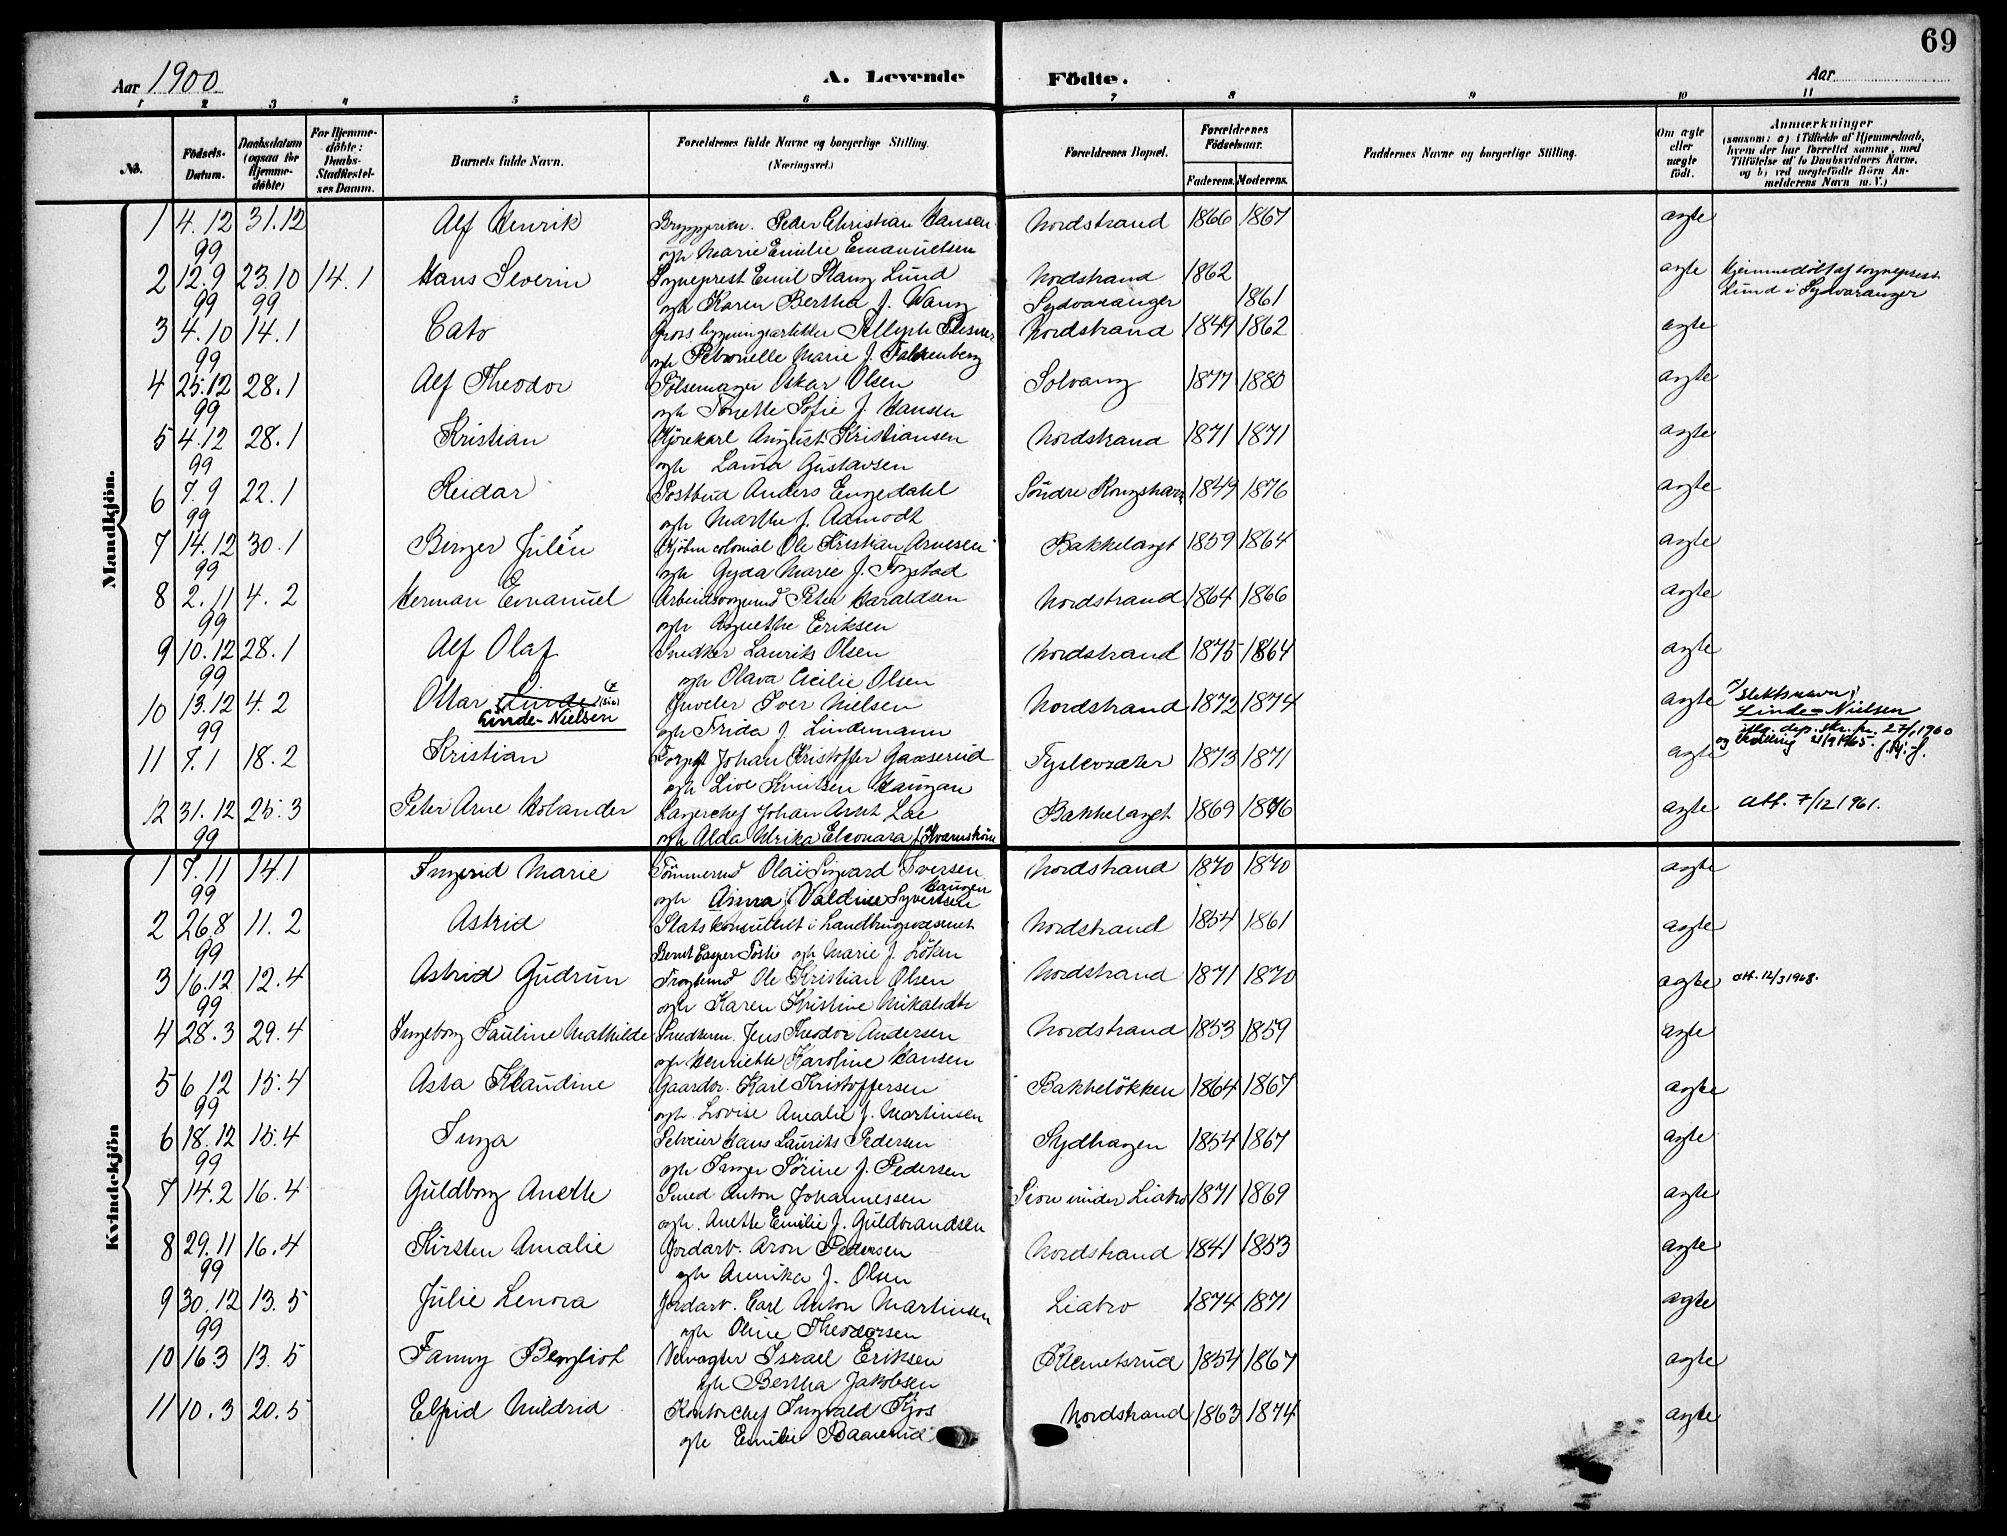 69
Aar 1900
A. Levende Födte.
Aar
1 2 3 4 5 6 7 8 9 10 11
No. Födsels-Datum. Daabsdatum (ogsaa for Hjemme-döbte) For Hjemme-döbte: Daabs-Stadfæstel-ses Datum. Barnets fulde Navn. Forældrenes fulde Navne og borgerlige Stilling. (Næringsvei.) Forældrenes Bopæl. Forældrenes Födselsaar. Faderens. Moderens. Faddernes Navne og borgerlige Stilling. Om ægte eller uægte födt. Anmærkninger (saasom: a) i Tilfælde af Hjemmedaab, hvem der har forrettet samme, med Tilföielse af to Daabsvidners Navne, og b) ved uægtefödte Börn An-melderens Navn m. V.)
Mandkjön.
1 4.12 31.12 Alf Henrik Peder Christian Hansen Nordstrand 1866 1867 ægte
99 og h Marie Emilie Emanuelsen
2 12.9 23.10 14.1 Hans Severin Sogneprest Emil Stang Lund Nordstrand 1862 ægte Hjemmedøbt af sogneprest
99 99 og h Karen Bertha f. Wang Sydvaranger 1861 Lund i Sydvaranger
3 4.10 14.1 Cato Nordstrand 1849 1862 ægte
99 og h Petronelle Marie f. Falkenberg
4 25.12 28.1 Alf Theodor Pølsemager Oskar Olsen Solvang 1877 1880 ægte
99 og h Tonette Sofie f. Hansen
5 4.12 28.1 Kristian Kjørekarl August Kristiansen Nordstrand 1871 1871 ægte
99 og h Laura Gustavsen
6 7.9 22.1 Reidar Postbud Anders Engedahl Søndre Kongshavn 1849 1876 ægte
99 og h Marthe f. Aamodt
7 14.12 30.1 Birger Julén Kjøbm colonial Ole Kristian Arnesen Bakkelaget 1859 1864 ægte
99 og h Gyda Marie f. Fogstad
8 2.11 4.2 Herman Emanuel Peter Haraldsen Nordstrand 1864 1866 ægte
99 og h Agnethe Eriksen
9 10.12 28.1 Alf Olaf Snedker Laurits Olsen Nordstrand 1875 1864 ægte
99 og h Olava Cecilie Olsen
10 13.12 4.2 Ottar Linde Juveler Iver Nielsen Nordstrand 1872 1874 ægte Slektsnavn:
99 Linde-Nielsen og h Frida f. Lindemann Linde-Nielsen
iflg. dep. skr. fr. 27/1 1960
11 7.1 18.2 Kristian Johan Kristoffer Gaaserud 1873 1871 ægte
og h Live Knutsen Haugan
12 31.12 25.3 Peter Arne Holander Lagerchef Johan Arnt Lae Bakkelaget 1869 1876 ægte att. 7/12 1961.
99 og h Alda Ulrika Eleonara f. Kvarnström
Kvindekjön
1 7.11 14.1 Ingrid Marie Olai Sigvard Iversen Nordstrand 1870 1870 ægte
99 Haugen
og h Anna Valdine Syvertsen
2 26.8 11.2 Astrid Statskonsulent i Landbrugsvæsenet Nordstrand 1854 1861 ægte
99 Bernt Casper og h Marie f. Løken
3 16.12 12.4 Astrid Gudrun Ole Kristian Olsen Nordstrand 1871 1870 ægte att. 12/3 1968.
99 og h Karen Kristine Mikalsdtr
4 28.3 29.4 Ingeborg Pauline Mathilde Snedkerm. Jens Theodor Andersen Nordstrand 1853 1859 ægte
og h Henriette Karoline Hansen
5 6.12 15.4 Asta Klaudine Gaardbr. Karl Kristoffersen Bakkeløkken 1864 1867 ægte
99 og h Lovise Amalie f. Martinsen
6 18.12 15.4 Inga Selveier Hans Laurits Pedersen Sydhagen 1854 1867 ægte
99 og h Inger Sørine f. Pedersen
7 14.2 16.4 Guldborg Anette Smed Anton Johannessen Sion under Liabro 1871 1869 ægte
og h. Anette Emilie f. Guldbrandsen
8 29.11 16.4 Kirsten Amalie Jordarb. Aron Pedersen Nordstrand 1841 1853 ægte
99 og h Annika f. Olsen
9 30.12 13.5 Julie Lenora Jordarb. Carl Anton Martinsen Liabro 1874 1871 ægte
99 og h Oline Theodorsen
10 16.3 13.5 Fanny Bergliot Veivagter Israel Eriksen Klemetsrud 1854 1867 ægte
og h Bertha Jakobsen
11 10.3 20.5 Elfrid Mildrid Kontorchef Ingvald Kjos Nordstrand 1863 1874 ægte
og h Emilie Baarerud